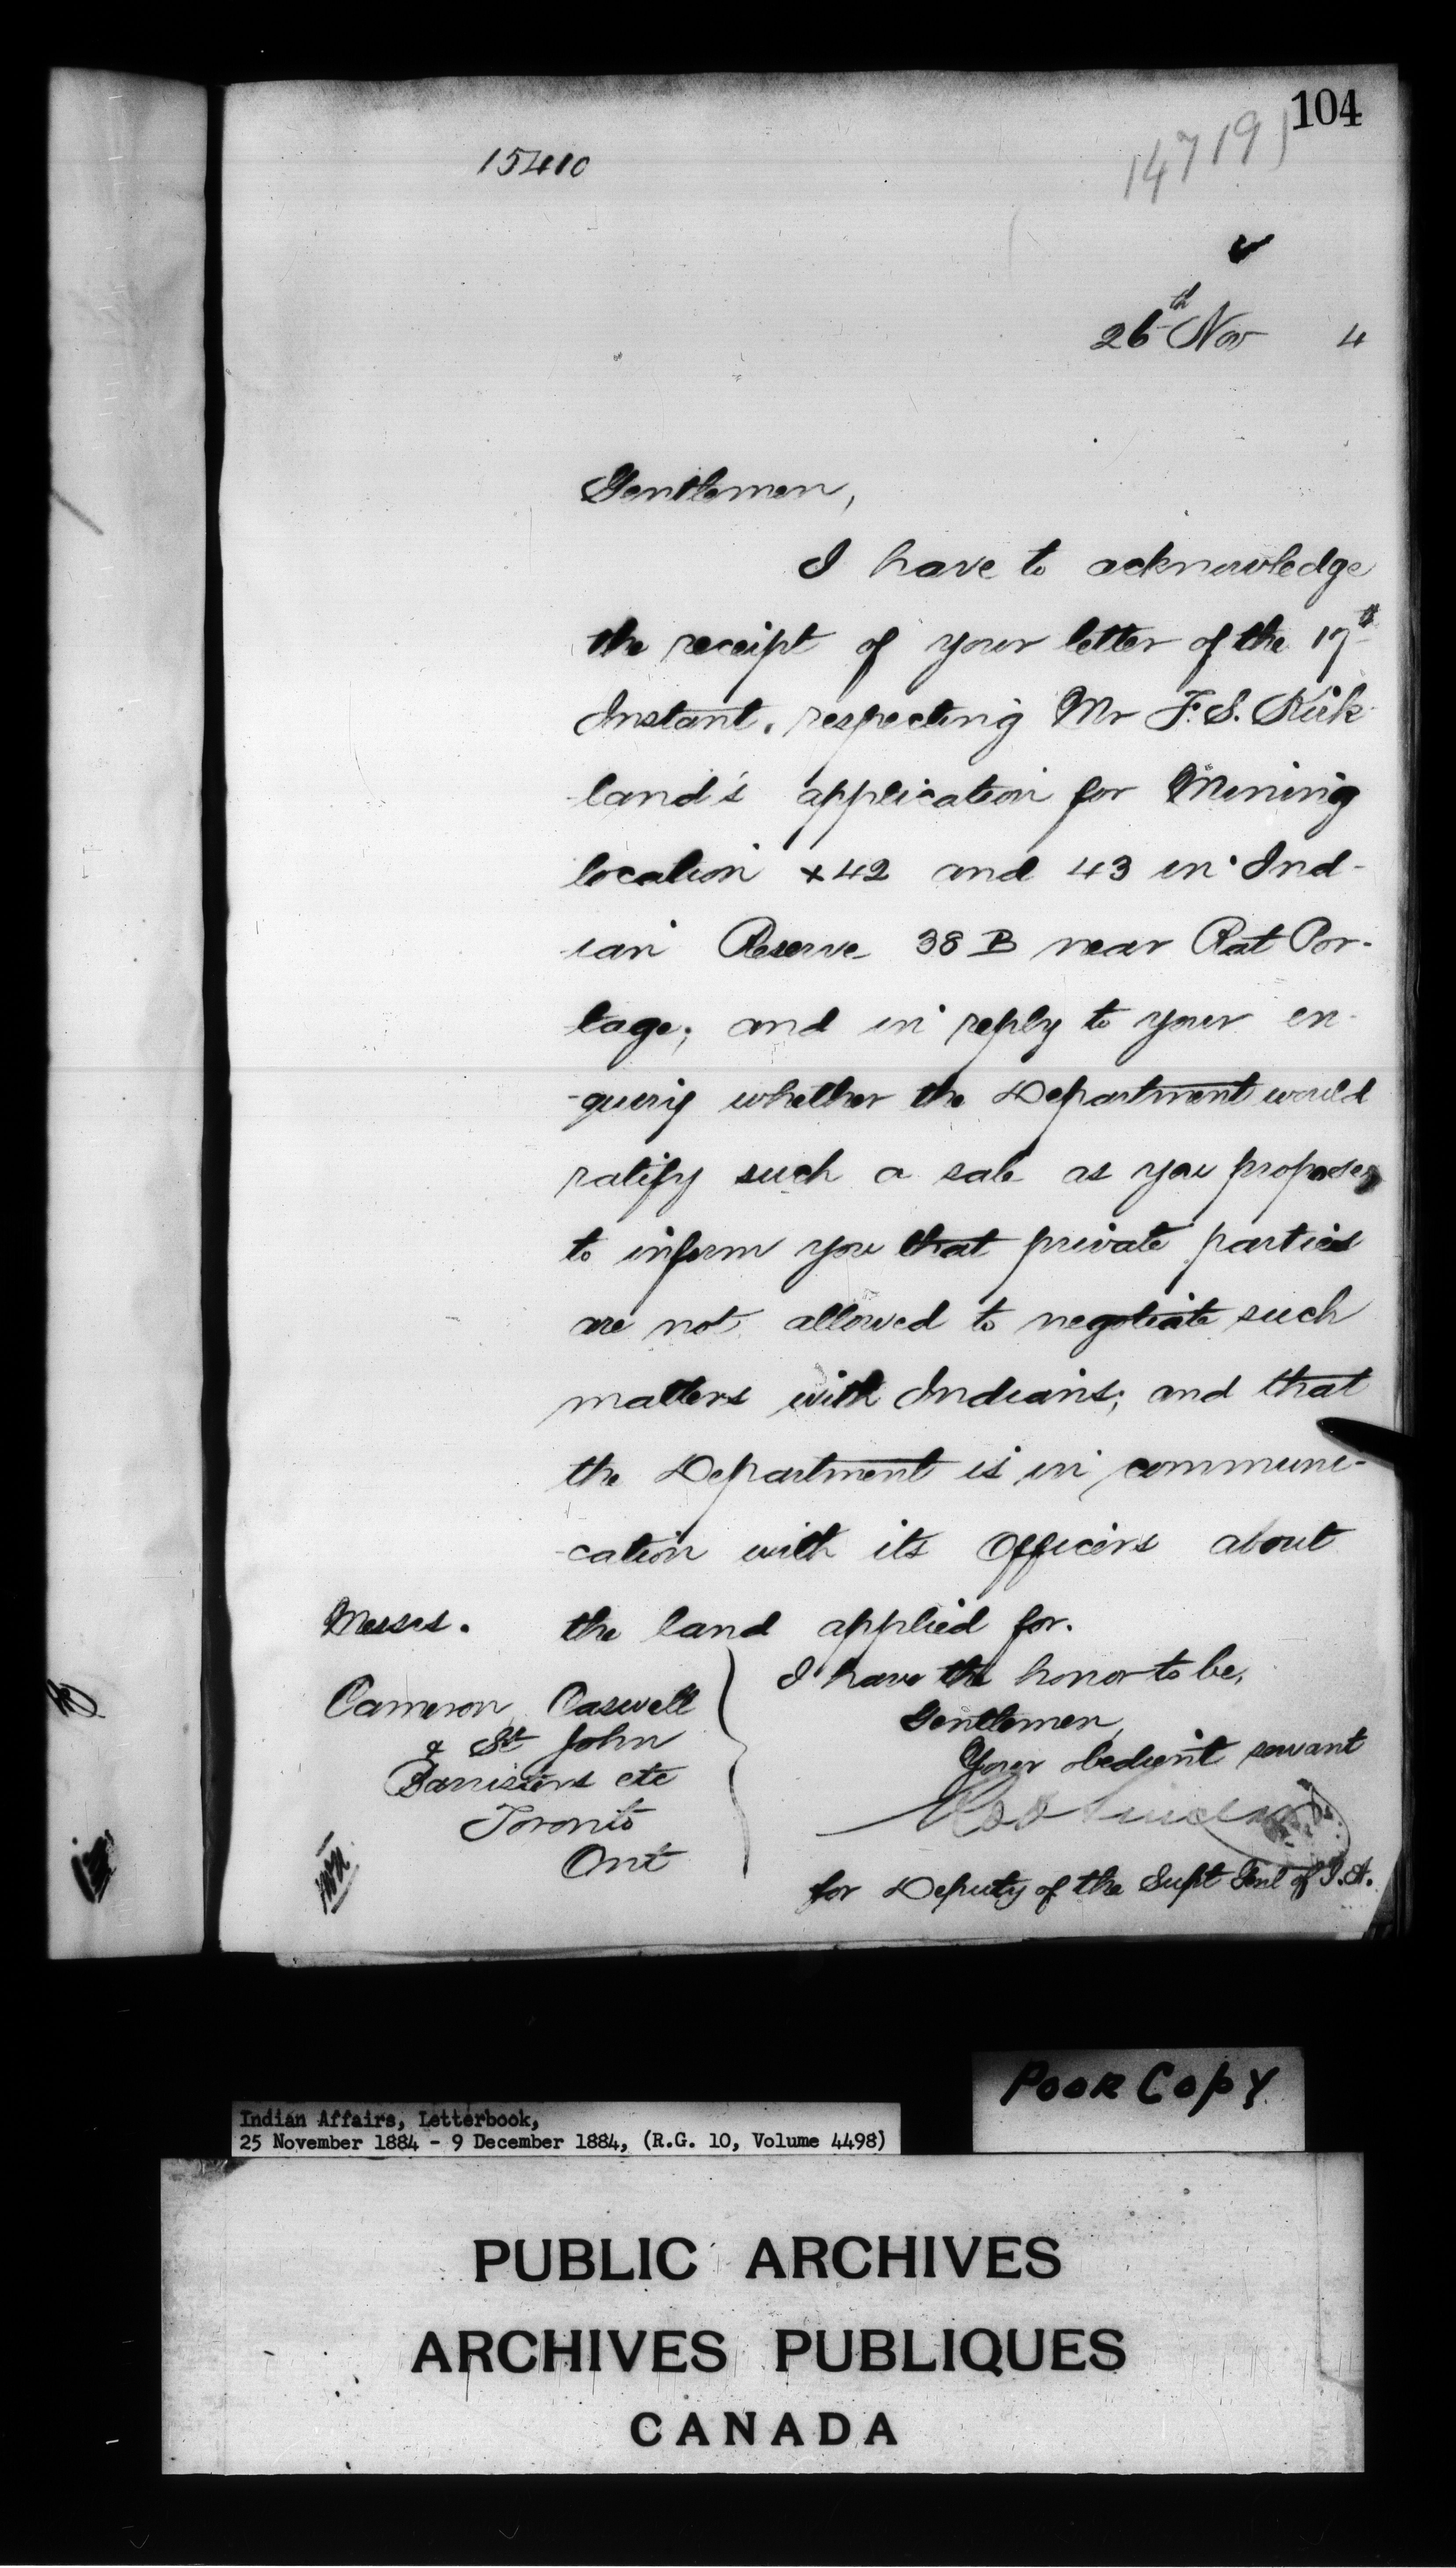 104
15410
14719
26th Nov 4
Gentlemen,
I have to acknowledge
the receipt of your letter of the 17th
Instant, respecting Mr F. S. Kirk-
land's application for Mining
location X42 and 43 in Ind-
ian Reserve 38 B near Rat Por-
tage; and in reply to your en-
-quiry whether the Department would
ratify such a sale as you propose,
to inform you that private parties
are not allowed to negotiate such
matters with Indians; and that
the Department is in communi-
-cation with its Officers about
the land applied for.
I have the honor to be,
Gentlemen,
Your obedient servant
for Deputy of the Supt Genl of I.A.
Messrs.
Cameron, Caswell
& St John
Barristers etc
Toronto
Ont
Poor Copy
Indian Affairs, Letterbook,
25 November 1884 - 9 December 1884, (R.G. 10, Volume 4498)
PUBLIC ARCHIVES
ARCHIVES PUBLIQUES
CANADA